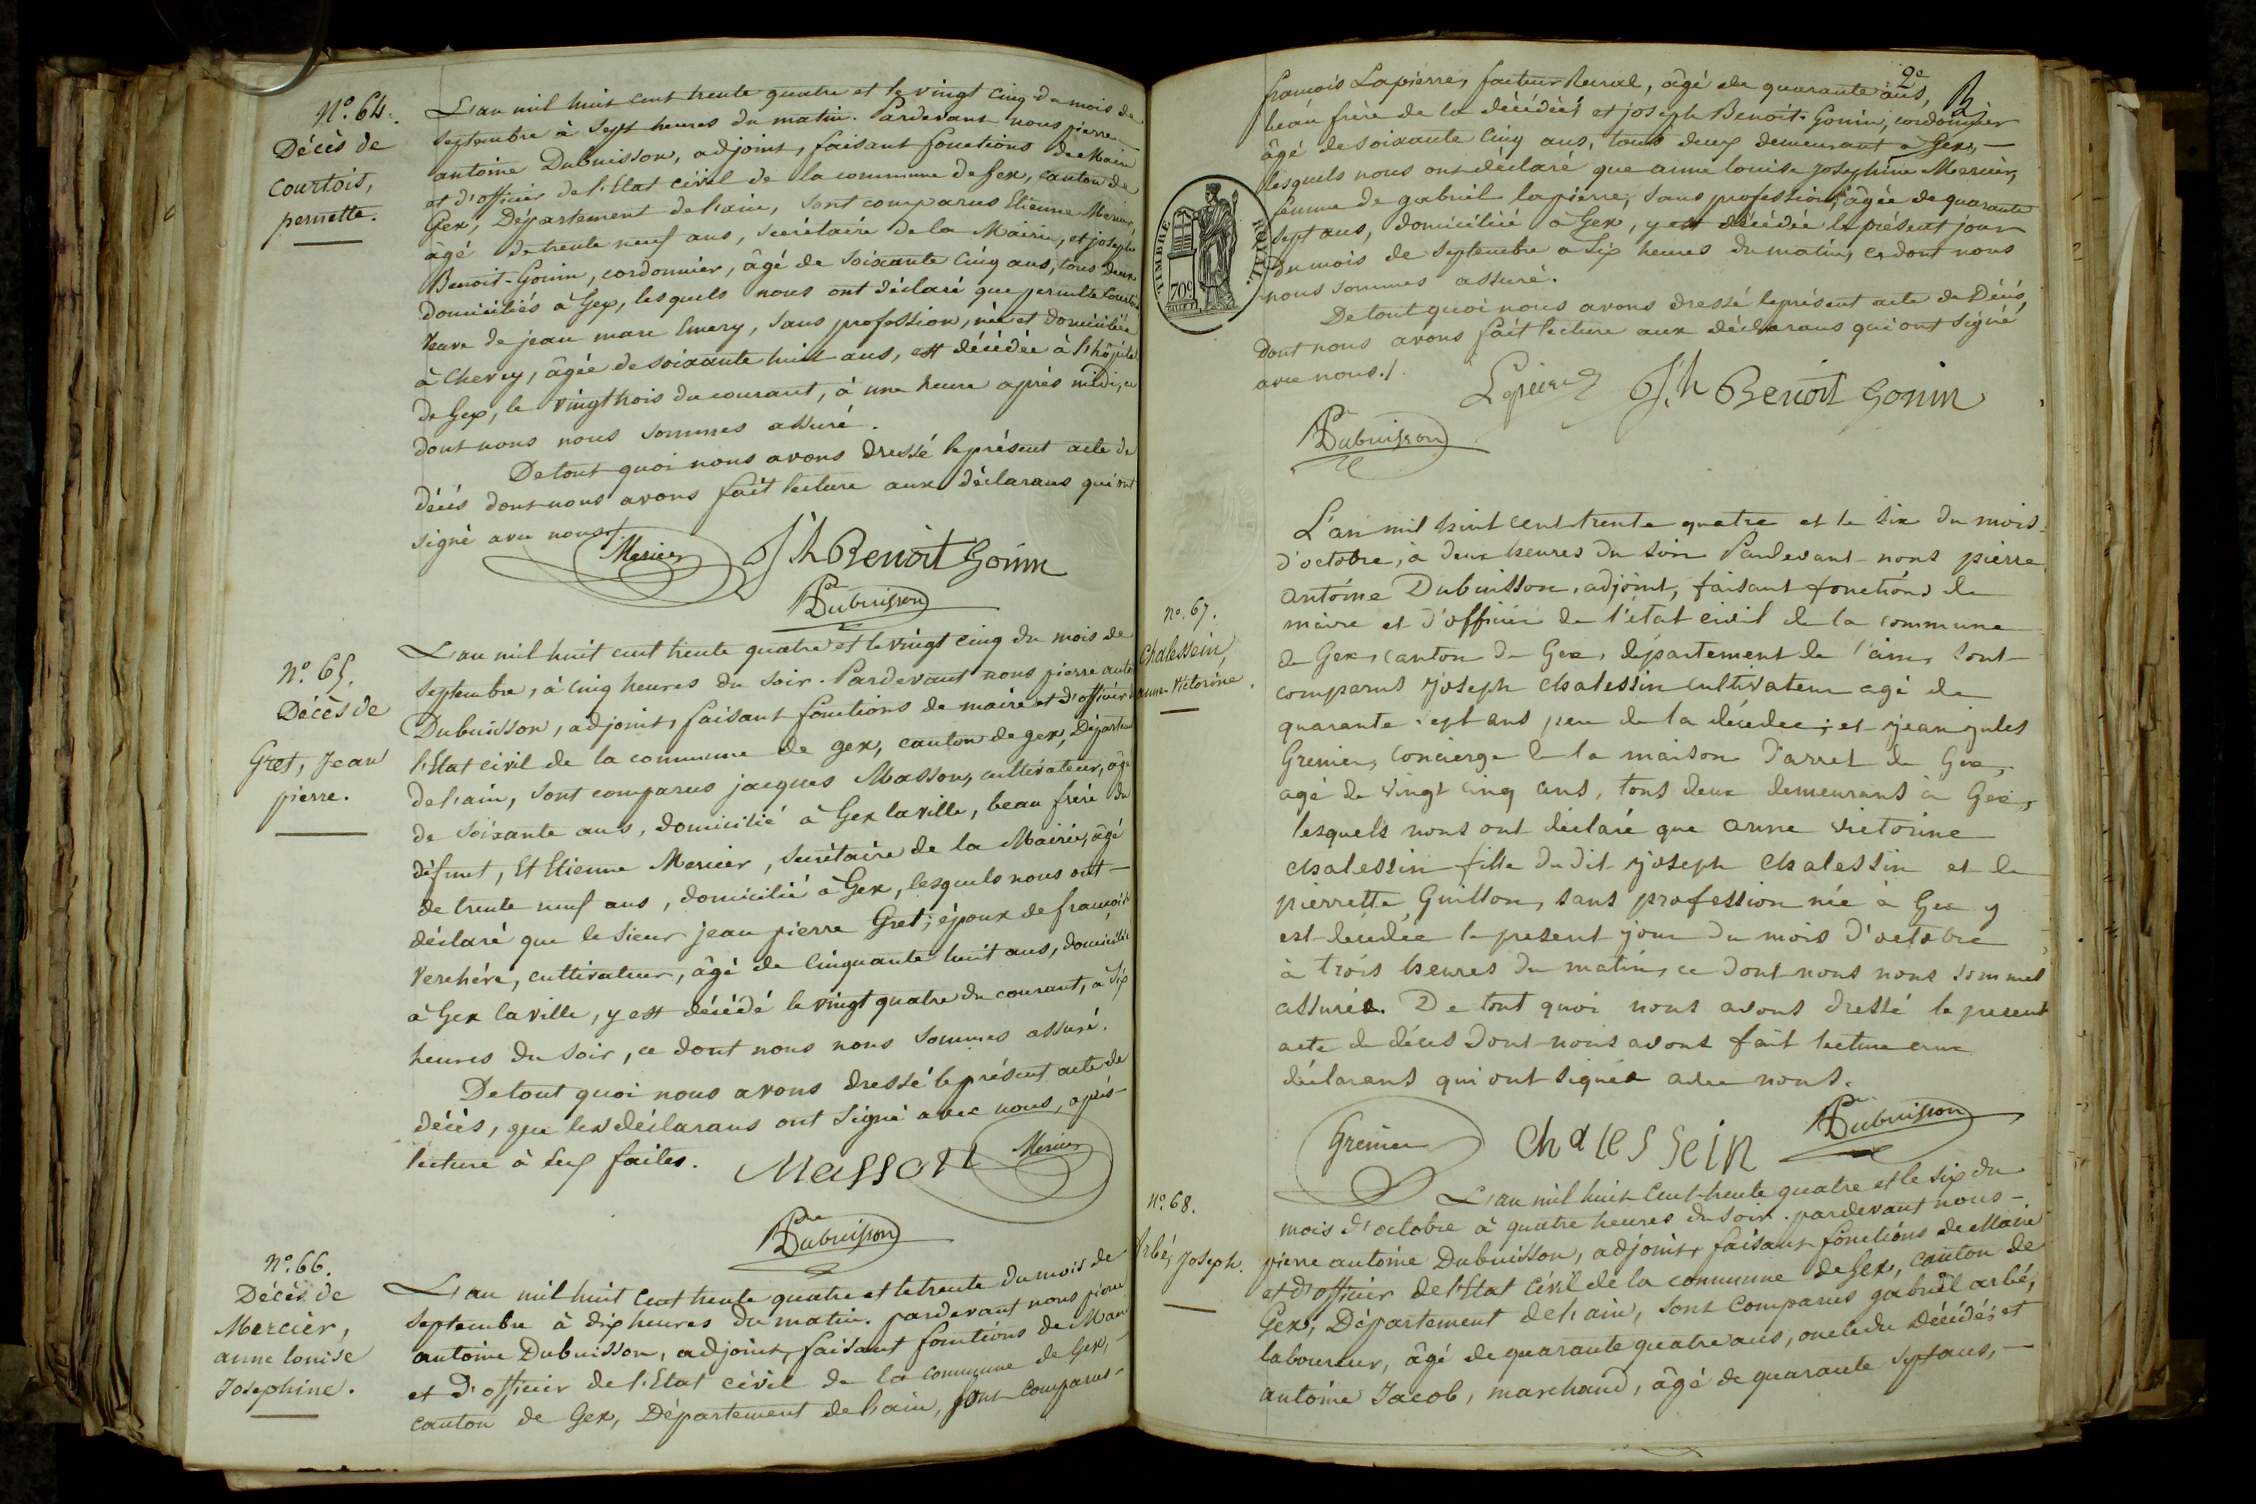 N.º 64.
Décès de
Courtois,
pernette.
L'an mil huit cent trente quatre et le vingt cinq du mois de
septembre à sept heures du matin. Pardevant nous pierre
antoine Dubuisson, adjoint, faisant fonctions de Maire
et d'officier de l'Etat civil de la commune de Gex, canton de
Gex, Département de l'ain, sont comparus Etienne Mercier,
âgé de trente neuf ans, secrétaire de la Mairie, et joseph
Benoit-Gonin, cordonnier, âgé de soixante cinq ans, tous deux
domiciliés à Gex, lesquels nous ont déclaré que pernette Courtois
veuve de jean marc Emery, sans profession, née et domiciliée
à Chevry, âgée de soixante huit ans, est décédée à l'hôpital
de Gex, le vingt trois du courant, à une heure après midi, ce
dont nous nous sommes assuré.
De tout quoi nous avons dressé le présent acte de
décès dont nous avons fait lecture aux déclarans qui ont
signé avec nous./.
Mercier Jh Benoit Gonin
Dubuisson
N.º 65.
Décès de
Gret, Jean
pierre.
L'an mil huit cent trente quatre et le vingt cinq du mois de
septembre, à cinq heures du soir. Pardevant nous pierre antoine
Dubuisson, adjoint, faisant fonctions de maire et d'officier
l'Etat civil de la commune de gex, canton de gex, Départem
de l'ain, sont comparus jacques Masson, cultivateur, âgé
de soixante ans, domicilié à Gex la ville, beau frère du
défunt, Et Etienne Mercier, secrétaire de la Mairie, âgé
de trente neuf ans, domicilié à Gex, lesquels nous ont
déclaré que le sieur jean pierre Gret, époux de françoise
Verchère, cultivateur, âgé de cinquante huit ans, domicilié
à Gex la ville, y est décédé le vingt quatre du courant, à six
heures du soir, ce dont nous nous sommes assuré.
De tout quoi nous avons dressé le présent acte de
décès, que les déclarans ont signé avec nous, après
lecture à eux faites.
Masson Mercier
Dubuisson
N.º 66.
Décès de
Mercier,
anne louise
Josephine.
L'an mil huit cent trente quatre et le trente du mois de
septembre à dix heures du matin. pardevant nous pierre
antoine Dubuisson, adjoint, faisant fonctions de Maire
et d'officier de l'Etat civil de la commune de Gex,
canton de Gex, Département de l'ain, sont comparus
2e
françois Lapierre, facteur Rural, âgé de quarante ans,
beau frère de la décédée et joseph Benoit-Gonin, cordonnier
âgé de soixante cinq ans, tous deux demeurant à Gex,
lesquels nous ont déclaré que anne louise josephine Mercier,
femme de gabriel lapierre, sans profession, âgée de quarante
sept ans, domiciliée à Gex, y est décédée le présent jour
du mois de septembre à six heures du matin, ce dont nous
nous sommes assuré.
TIMBRE ROYAL
70c
De tout quoi nous avons dressé le présent acte de Décès,
dont nous avons fait lecture aux déclarans qui ont signé
avec nous./.
Lapierre Jh Benoit Gonin
Dubuisson
N.º 67.
Chalessein,
anne-Victorine.
L'an mil huit cent trente quatre et le six du mois
d'octobre, à deux heures du soir Pardevant nous pierre
antoine Dubuisson, adjoint, faisant fonctions de
maire et d'officier de l'état civil de la commune
de Gex, canton de Gex, département de l'ain, sont
comparus joseph chalessin cultivateur agé de
quarante sept ans pere de la décedée; et jean jules
Grenier, concierge de la maison d'arret de Gex,
agé de vingt cinq ans, tous deux demeurans à Gex,
lesquels nous ont déclaré que anne victorine
chalessin fille du dit joseph chalessin et de
pierrette Guillon, sans profession née à Gex y
est décedée le present jour du mois d'octobre
à trois heures du matin, ce dont nous nous sommes
assurés. De tout quoi nous avons dressé le present
acte de déces dont nous avons fait lecture aux
déclarans qui ont signés avec nous.
Grenier Chalessein Dubuisson
N.º 68.
Arbé, Joseph.
L'an mil huit cent trente quatre et le six du
mois d'octobre à quatre heures du soir. pardevant nous
pierre antoine Dubuisson, adjoint, faisant fonctions de Maire
et d'officier de l'Etat civil de la commune de Gex, canton de
Gex, Département de l'ain, sont comparus gabriel arbé,
laboureur, âgé de quarante quatre ans, oncle du décédé; et
antoine Jacob, marchand, âgé de quarante sept ans,